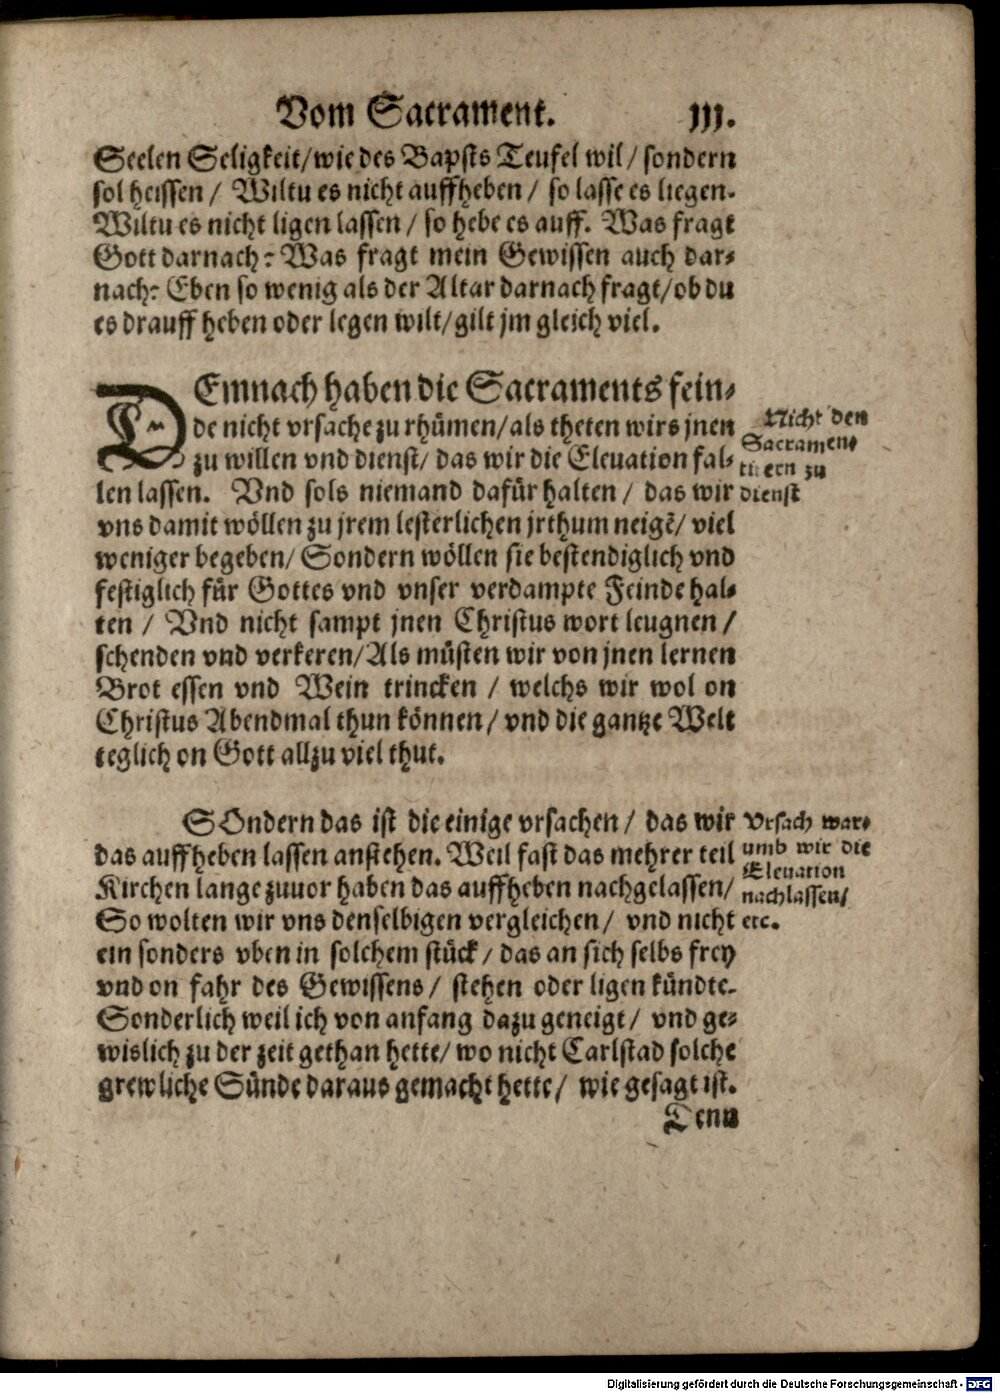 Vom Sacrament. III.
Seelen Seligkeit/wie des Bapsts Teufel wil/ sondern
sol heissen / Wiltu es nicht auffheben / so lasse es liegen.
Wiltu es nicht ligen lassen / so hebe es auff. Was fragt
Gott darnach? Was fragt mein Gewissen auch dar-
nach? Eben so wenig als der Altar darnach fragt/ob du
es drauff heben oder legen wilt/gilt jm gleich viel.
DEmnach haben die Sacraments fein-
de nicht vrsache zu rhümen/als theten wirs jnen
zu willen vnd dienst/ das wir die Eleuation fal-
len lassen. Vnd sols niemand dafür halten / das wir
vns damit wöllen zu jrem lesterlichen jrthum neigē/ viel
weniger begeben/ Sondern wöllen sie bestendiglich vnd
festiglich für Gottes vnd vnser verdampte Feinde hal-
ten / Vnd nicht sampt jnen Christus wort leugnen /
schenden vnd verkeren/Als müsten wir von jnen lernen
Brot essen vnd Wein trincken / welchs wir wol on
Christus Abendmal thun können/ vnd die gantze Welt
teglich on Gott allzu viel thut.
Nicht den
Sacramen-
tirern zu
dienst
SOndern das ist die einige vrsachen/ das wir
das auffheben lassen anstehen. Weil fast das mehrer teil
Kirchen lange zuuor haben das auffheben nachgelassen/
So wolten wir vns denselbigen vergleichen/ vnd nicht
ein sonders vben in solchem stück/ das an sich selbs frey
vnd on fahr des Gewissens/ stehen oder ligen kündte.
Sonderlich weil ich von anfang dazu geneigt/ vnd ge-
wislich zu der zeit gethan hette/ wo nicht Carlstad solche
grewliche Sünde daraus gemacht hette/ wie gesagt ist.
Vrsach war-
umb wir die
Eleuation
nachlassen/
etc.
Denn
Digitalisierung gefördert durch die Deutsche Forschungsgemeinschaft - DFG